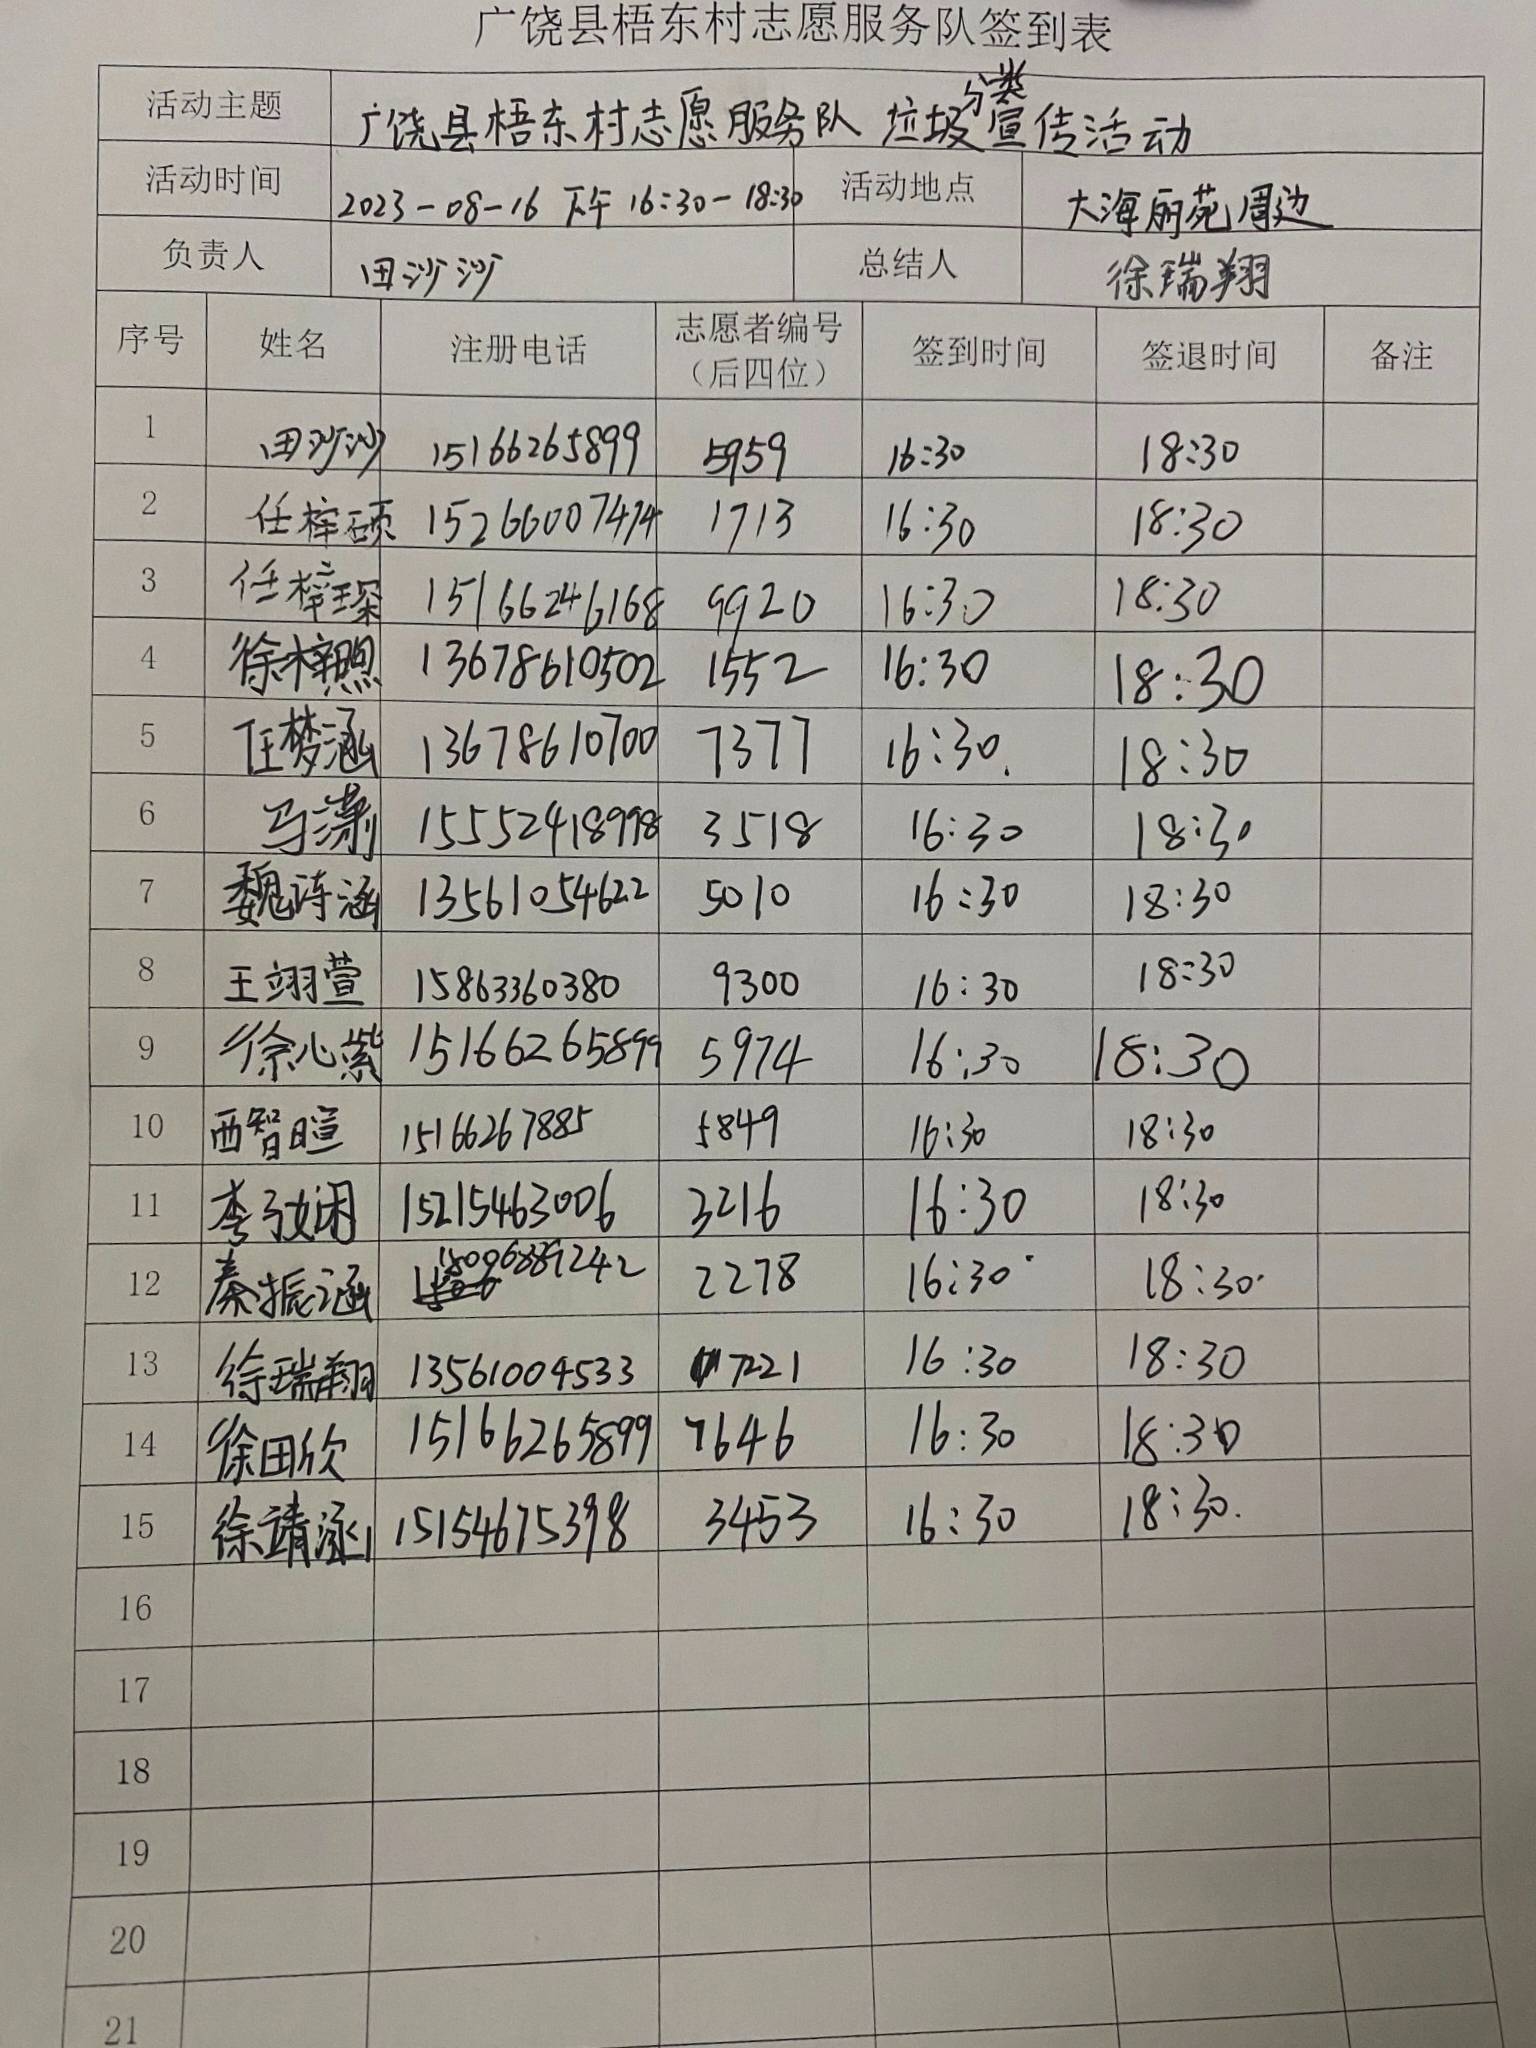 广饶县梧东村志愿服务队签到表
活动主题 广饶县梧东村志愿服务队 垃圾分类宣传活动
活动时间 2023-08-16 下午 16:30-18:30 活动地点 大海丽苑周边
负责人 田沙沙 总结人 徐瑞翔
序号 姓名 注册电话 志愿者编号（后四位） 签到时间 签退时间 备注
1 田沙沙 15166265899 5959 16:30 18:30
2 任梓硕 15266007474 1713 16:30 18:30
3 任梓琛 15166246168 9920 16:30 18:30
4 徐梓煦 13678610502 1552 16:30 18:30
5 任梦涵 13678610700 7377 16:30. 18:30
6 马潇 15552418998 3518 16:30 18:30
7 魏诗涵 13561054622 5010 16:30 18:30
8 王翊萱 15863360380 9300 16:30 18:30
9 徐心紫 15166265899 5974 16:30 18:30
10 西智暄 15166267885 5849 16:30 18:30
11 李弘闲 15215463006 3216 16:30 18:30
12 秦振涵 18006889242 2278 16:30 18:30
13 徐瑞翔 13561004533 7221 16:30 18:30
14 徐田欣 15166265899 7646 16:30 18:30
15 徐靖涵 15154675398 3453 16:30 18:30.
16
17
18
19
20
21